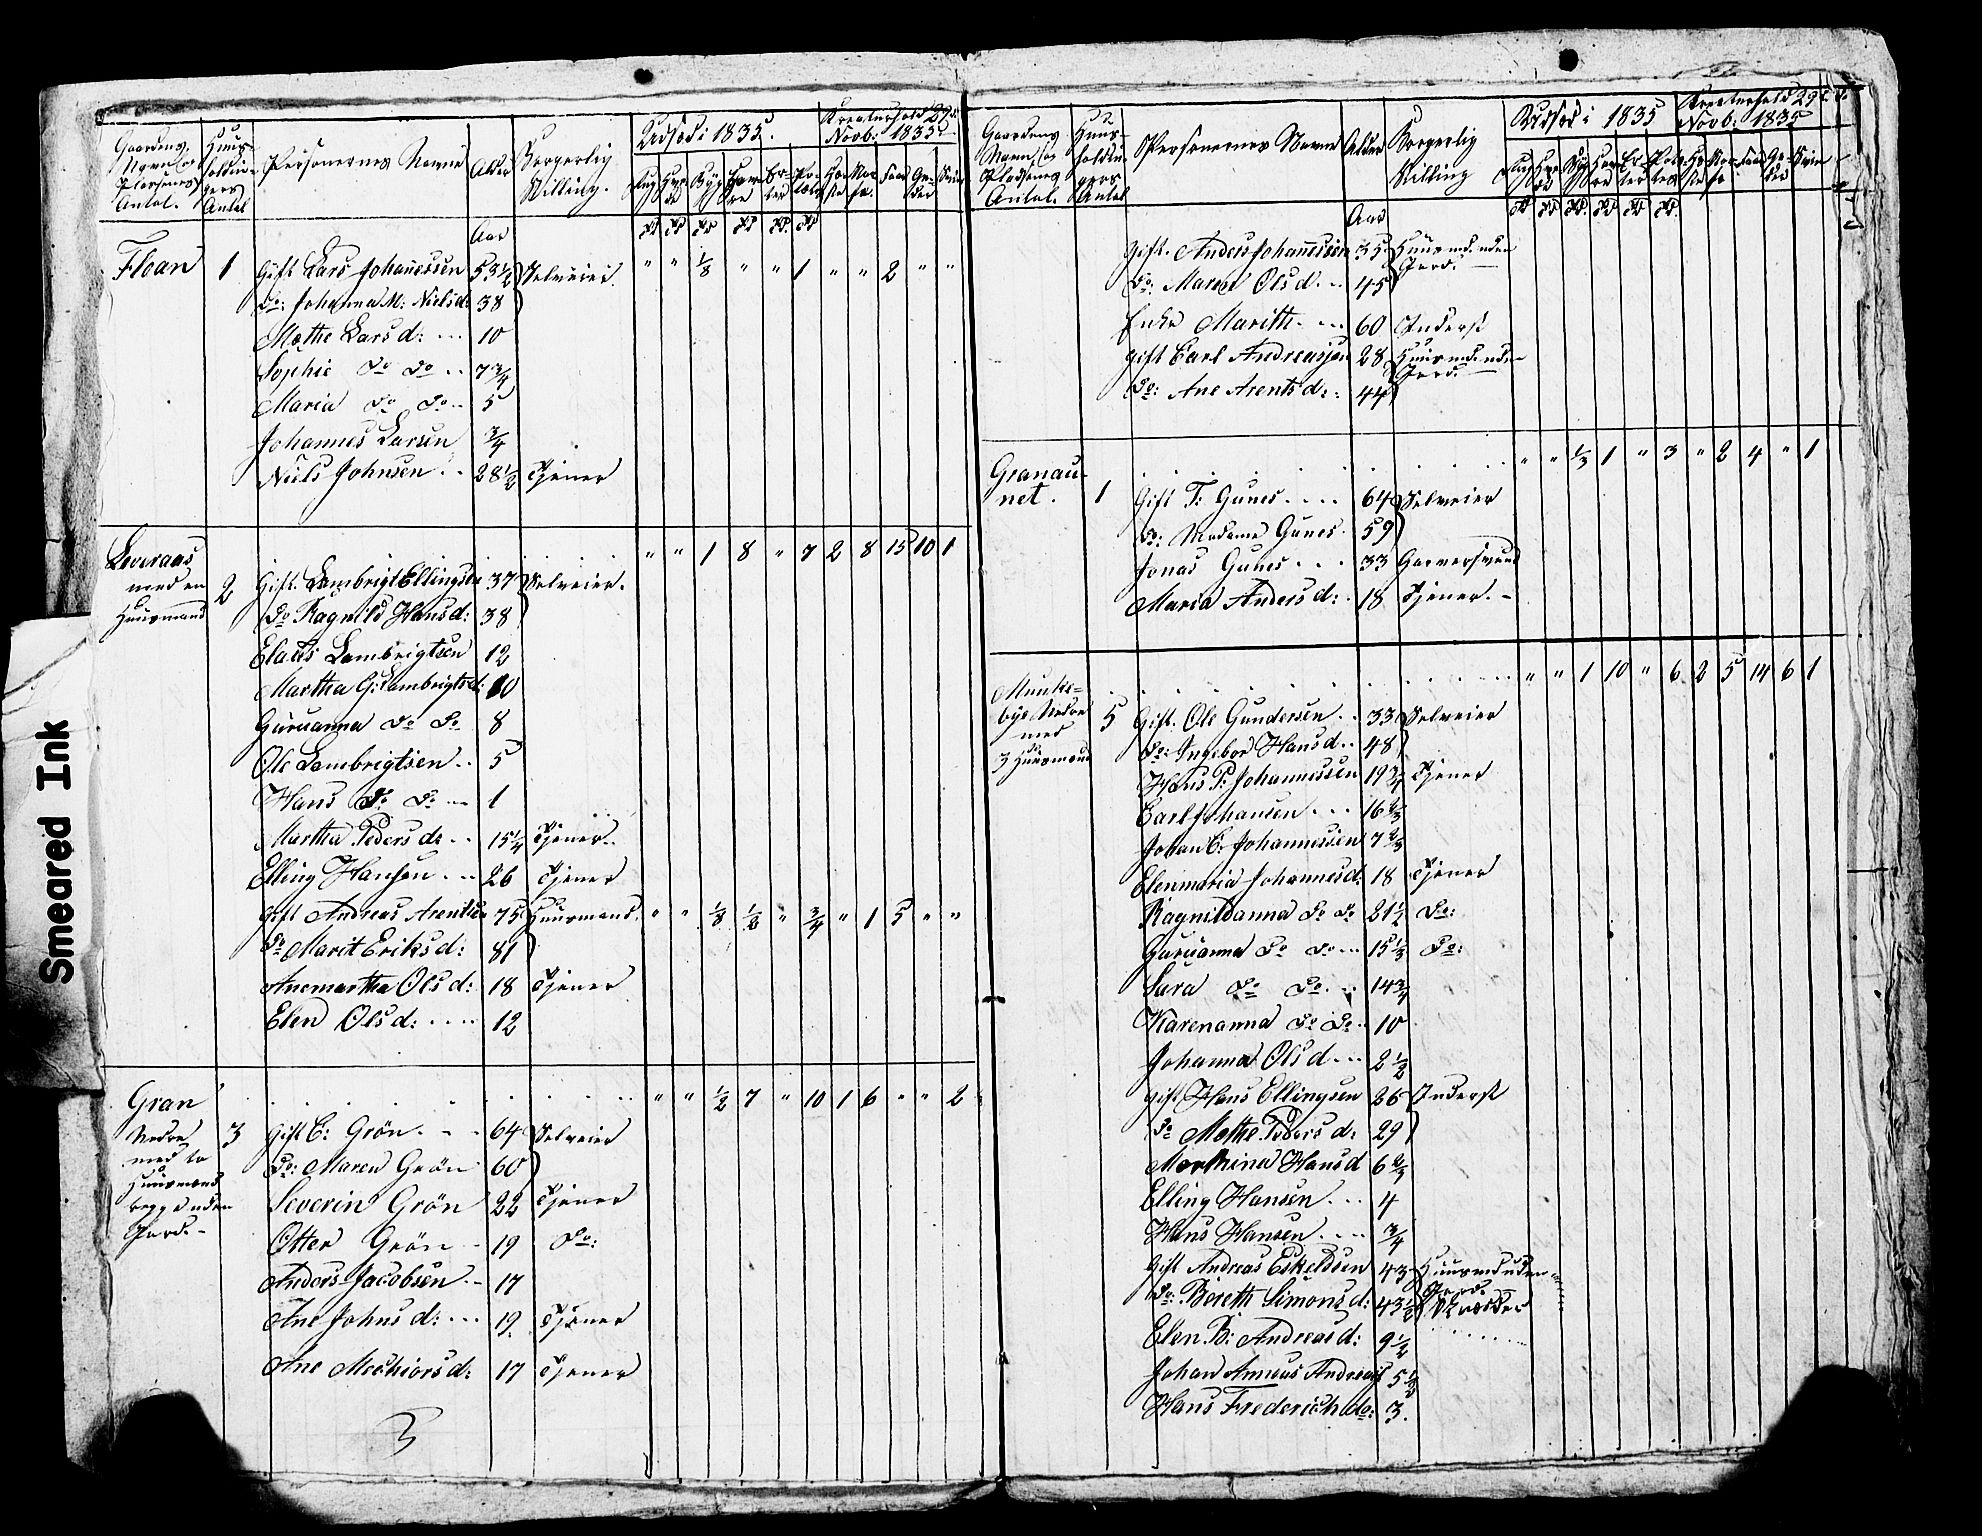 Gaardens Navn og Pladsenes Antal.
Huus-holdnin-gers Antal
Personernes Navne
Alder
Borgerlig Stilling.
Udsæd i 1835.
Kreaturhold 29de Novb: 1835
Aar
Floan 1 Gift Lars Johannessen 53 1/2 Selveier. " " 1/8 " " 1 " " 2 " "
Do: Johanna M: Nielsd: 38
Methe Larsd: 10
Sophie Do Do 7 3/4
Maria Do Do 5
Johannes Larsen 3/4
Niels Johnsen 28 1/2 Tjener
" " 1 8 " 7 2 8 15 10 1
Loveraas med en Huusmand 2 Gift Lambrigt Ellingsen 37 Selveier.
Do Ragnild Hansd: 38
Claus Lambrigtsen 12
Martha G: Lambrigtsd: 10
Guruanna Do Do 8
Ole Lambrigtsen 5
Hans Do Do 1
Martha Pedersd: 15 1/4 Tjener
Elling Hansen 26 Tjener
Gift Andreas Arentsen 75 Huusmand. " " 1/8 1/2 " 3/4 " 1 5 " "
Do Marit Eriksd: 81
Anemartha Olsd: 18 Tjener
Elen Olsd: 12
Gran " " 1/2 7 " 10 1 6 " " 2
Nedre med to Huusmænd begge uden Jord. 3 Gift C: Grön 64 Selveier
Do: Maren Grön 60
Severin Grön 22 Tjener
Otter Grön 19 Do:
Anders Jacobsen 17
Ane Johnsd: 19 Tjener
Ane Mechiorsd: 17 Tjener
3
Gaardens Navn og Pladsenes Antal.
Huus-holdnin-gers Antal
Personernes Navne
Alder
Borgerlig Stilling
Udsæd i 1835
Kreaturhold 29de Novb: 1835
Aar
Gift Anders Johannessen 35 Huusmd. uden Jord.
Do: Maren Olsd 45
Enke Marith 60 Inderst
Gift Carl Andreassen 28 Huusmd. uden Jord.
Do: Ane Arentsd: 44
Granau- " " 1/3 1 " 3 " 2 4 " 1
net. 1 Gift T: Gunes 64 Selveier
Do: Madame Gunes 59
Jonas Gunes 33 Garversvend
Maria Andersd: 18 Tjener
" " 1 10 " 6 2 5 14 6 1
Munke-bye Nedre med 3 Huusmænd 5 Gift Ole Gundersen 33 Selveier
Do: Ingebor Hansd 48
Hans P: Johannessen 19 3/4 Tjener
Carl Johansen 16 2/3
Johan C: Johannessen 7 2/3
Elenmaria Johannesd: 18 Tjener
Ragnildanna Do Do 21 1/2 Do:
Guruanna Do Do 15 1/3 Do:
Sara Do Do 14 3/4
Karenanna Do Do 10
Johanna Olsd 2 1/2
Gift Hans Ellingsen 26 Inderst
Do Methe Pedersd: 29
Hansd 6 2/3
Elling Hansen 4
Hans Hansen 3/4
Gift Andreas Eskeldsen 43 Huusmd uden Jord.
Do: Bereth Simonsd: 43 1/2
Elen B: Andreasd: 9 1/2
Johan Andreas 5 1/2
Hans Frederich do: 3.
Smeared Ink